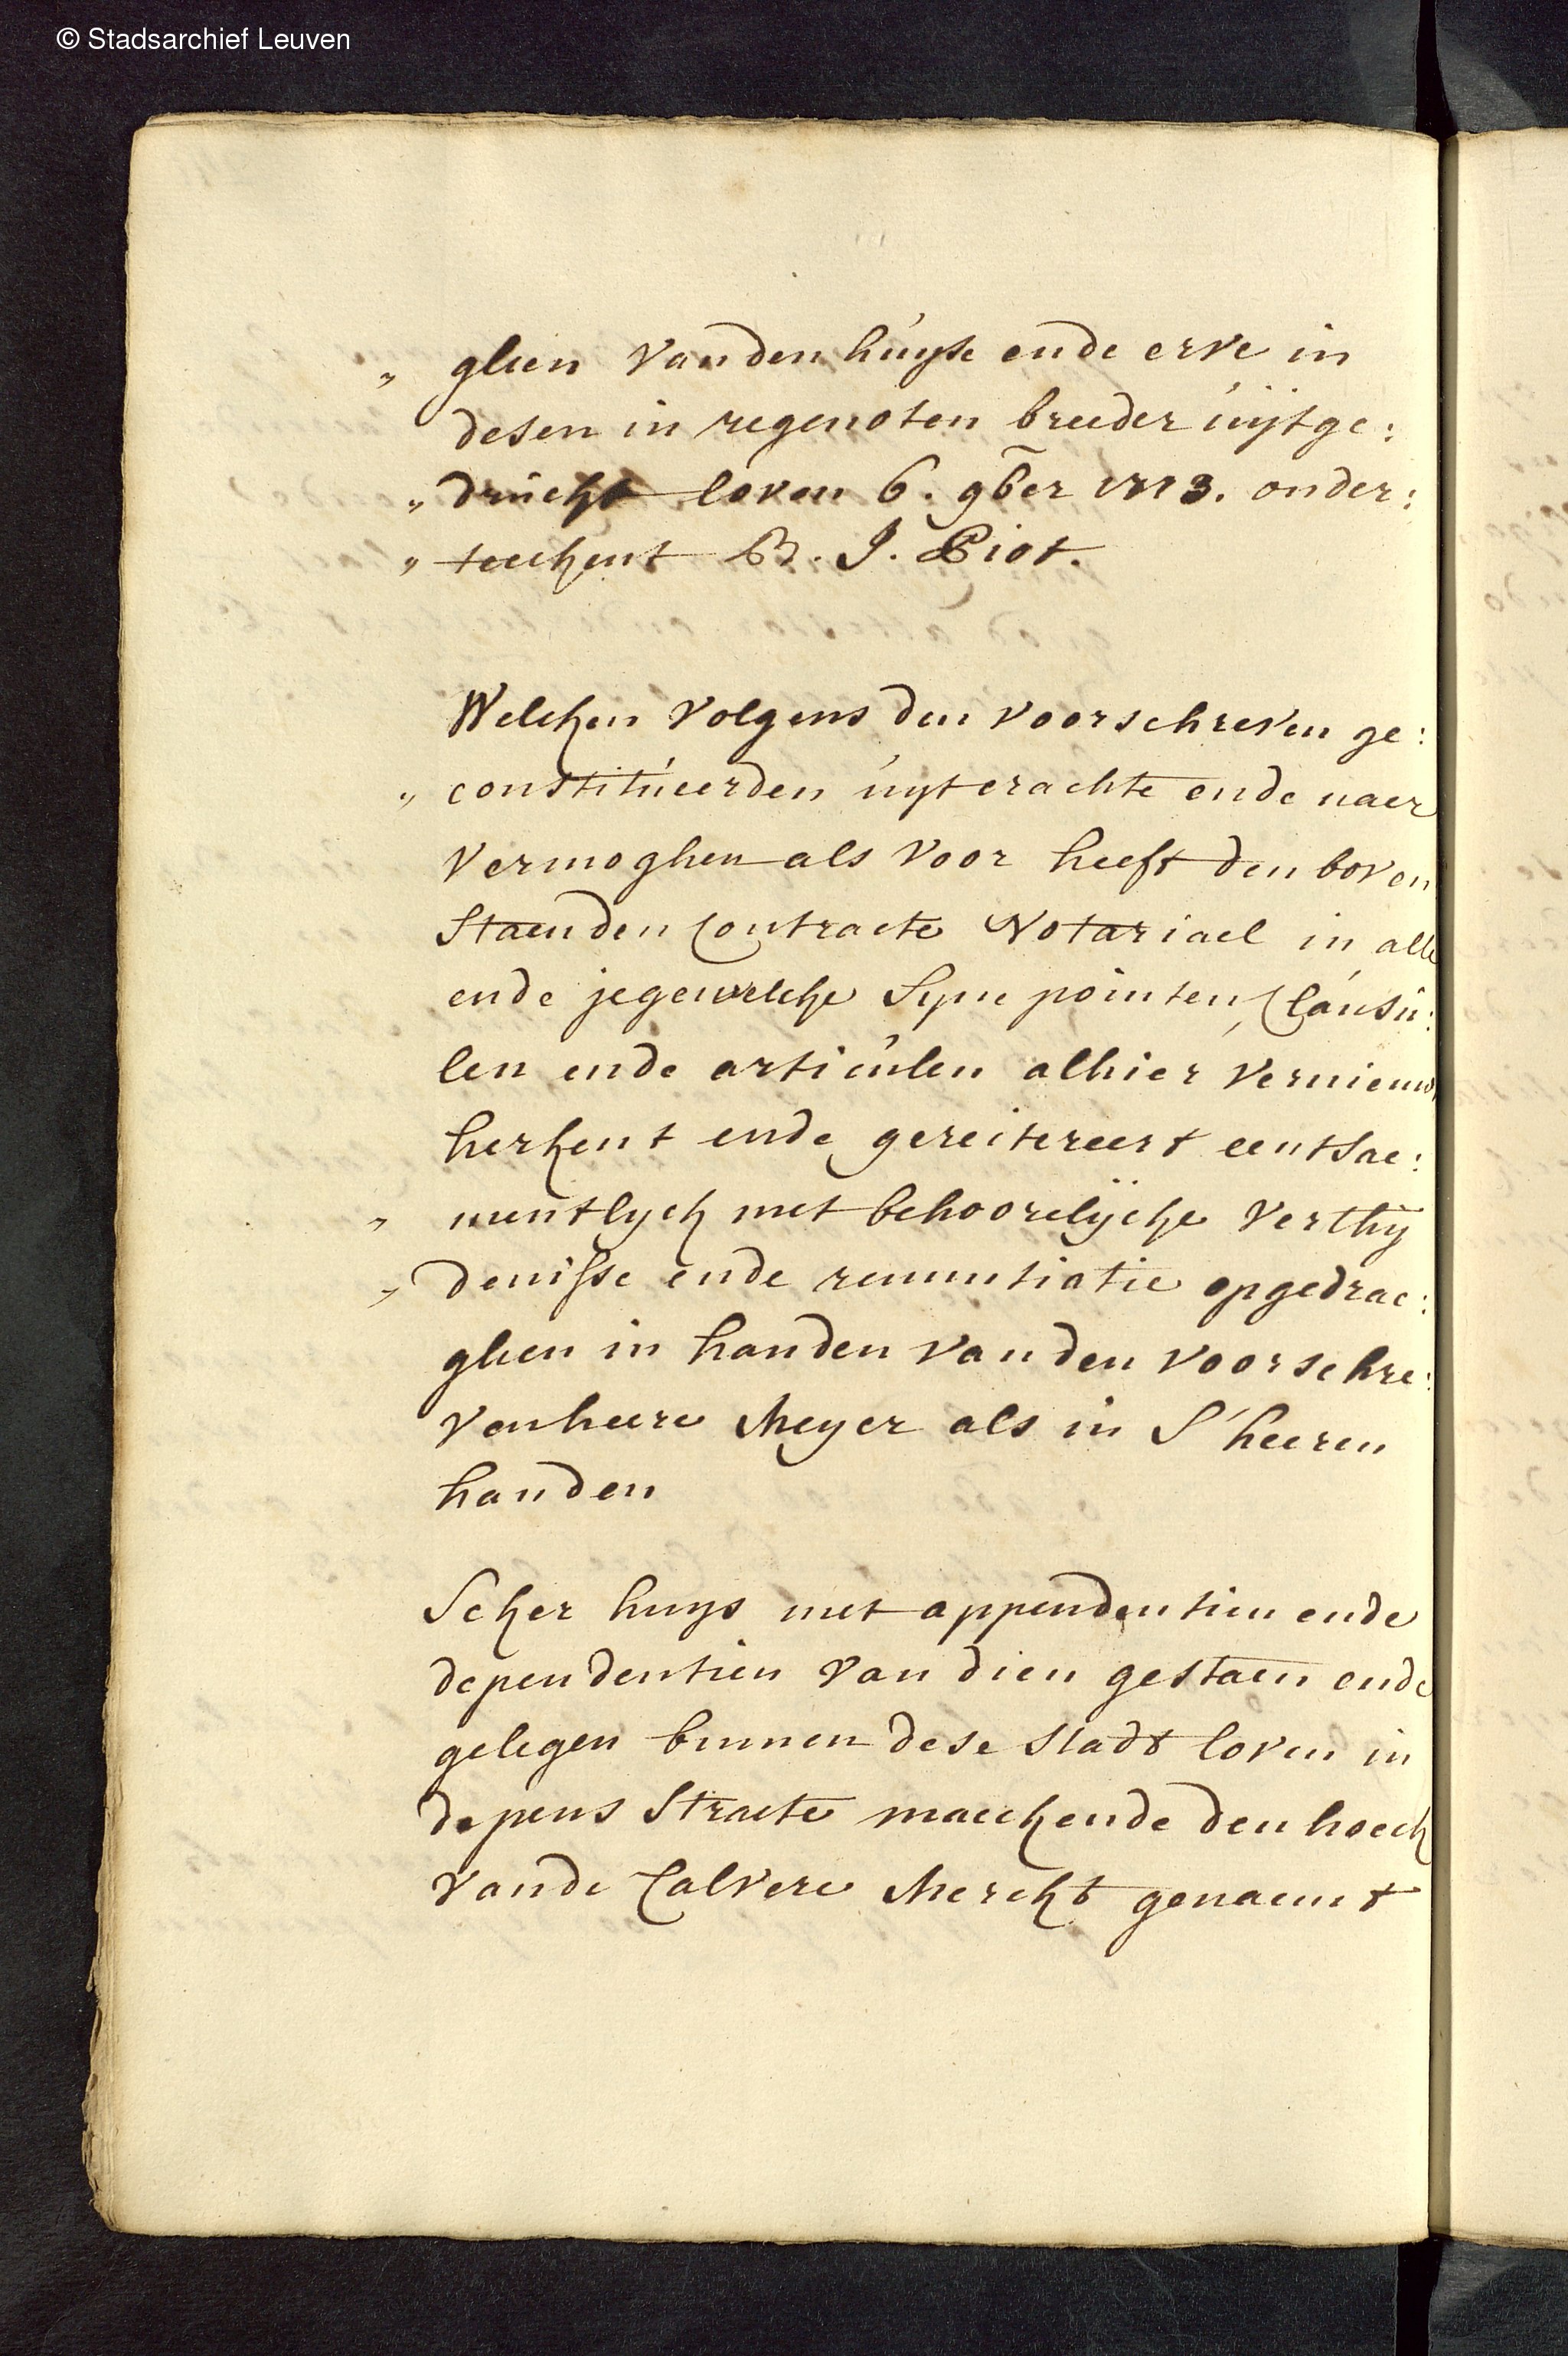 © Stadsarchief Leuven
„ ghen vanden húyse ende erve in
desen in regenoten breeder úijtge:
„ drúckt loven 6. 9b̅er 1773. onder:
„ teeckent B. J. Piot.
Welcken volgens den voorschreven ge:
„ constitúeerden úyt crachte ende naer
vermoghen als voor heeft den boven
staenden Contracte Notariael in alle
ende jegewelcke syne pointen, Claúsú:
len ende articúlen alhier vernieuwt
herkent ende gereitereert eentsae:
„ mentlyck met behoorelijcke verthij
„ denisse ende renuntiatie opgedrae:
ghen in handen vanden voorschre:
ven heere Meyer als in S'heeren
handen
Seker huys met appendentien ende
dependentien van dien gestaen ende
gelegen binnen dese stadt loven in
de pens straete maeckende den hoeck
vande Calvere Merckt genaemt